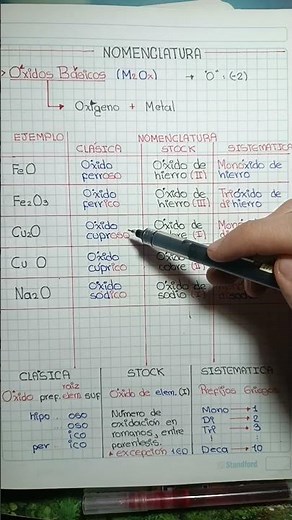 NOMENCLATURA
> Óxidos Básicos (M₂Oₓ) → "O" = (-2)
Oxígeno + Metal
EJEMPLO NOMENCLATURA
CLÁSICA STOCK SISTEMÁTICA
FeO Óxido ferroso Óxido de hierro (II) Monóxido de hierro
Fe₂O₃ Óxido ferrico Óxido de hierro (III) Trióxido de dihierro
Cu₂O Óxido cuproso Óxido de cobre (I)
CuO Óxido cúprico cobre (II)
Na₂O Óxido sódico Óxido de sodio (I)
CLÁSICA STOCK SISTEMÁTICA
raíz
Óxido pref. elem. suf Óxido de elem. (I) Prefijos Griegos
hipo oso Número de Mono → 1
oso oxidación en Di → 2
ico romanos, entre Tri → 3
per ico parentesis. Deca → 10
* excepción 1EO
Stanford